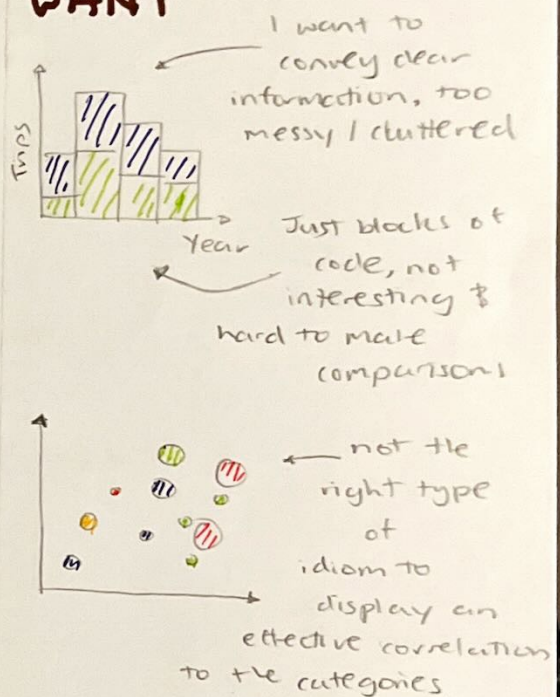 WANT
I want to
convey clear
information, too
messy / cluttered
Trips
Year
Just blocks of
code, not
interesting &
hard to make
comparisons
not the
right type
of
idiom to
display an
effective correlation
to the categories